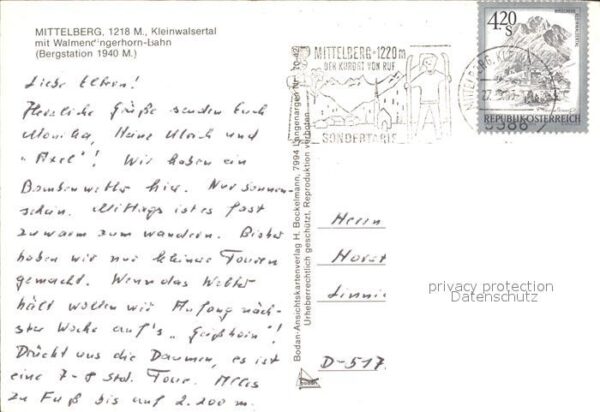 MITTELBERG, 1218 M., Kleinwalsertal
mit Walmendingerhorn-Bahn
(Bergstation 1940 M.)
Liebe Eltern!
Herzliche Grüße senden Euch
Monika, Hans Ulrich und
"Axel"! Wir haben ein
Bombenwetter hier. Nur Sonnen-
schein. Mittags ist es fast
zu warm zum wandern. Bisher
haben wir nur kleinere Touren
gemacht. Wenn das Wetter
hält wollen wir Anfang näch-
ster Woche auf's "Geißhorn"!
Drückt uns die Daumen, es ist
eine 7-8 Std. Tour. Alles
zu Fuß bis auf 2.200 m.
Bodan-Ansichtskartenverlag H. Bockelmann, 7994 Langenargen
Urheberrechtlich geschützt. Reproduktion verboten
BODAN
MITTELBERG·1220m
DER KURORT VON RUF
SONDERTARIF
MITTELBERG, KL
4.20
S
REPUBLIK ÖSTERREICH
Herrn
Horst
D-517
privacy protection
Datenschutz